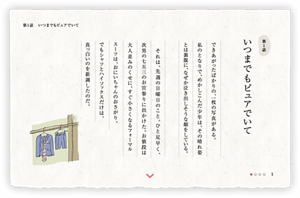 第1話　いつまでもピュアでいて
第1話
いつまでもピュアでいて
できあがったばかりの、一枚の写真がある。
私のとなりで、めかしこんだ少年は、その晴れ姿
とは裏腹に、なぜか泣き出しそうな顔をしている。
それは、先週の日曜日のこと。ひと足早く、
次男の七五三のお宮参りに出かけた。お値段は
大人並みのくせに、すぐ小さくなるフォーマル
スーツは、おにいちゃんのおさがり。
でもシャツとハイソックスだけは、
真っ白いのを新調したのだ。
1